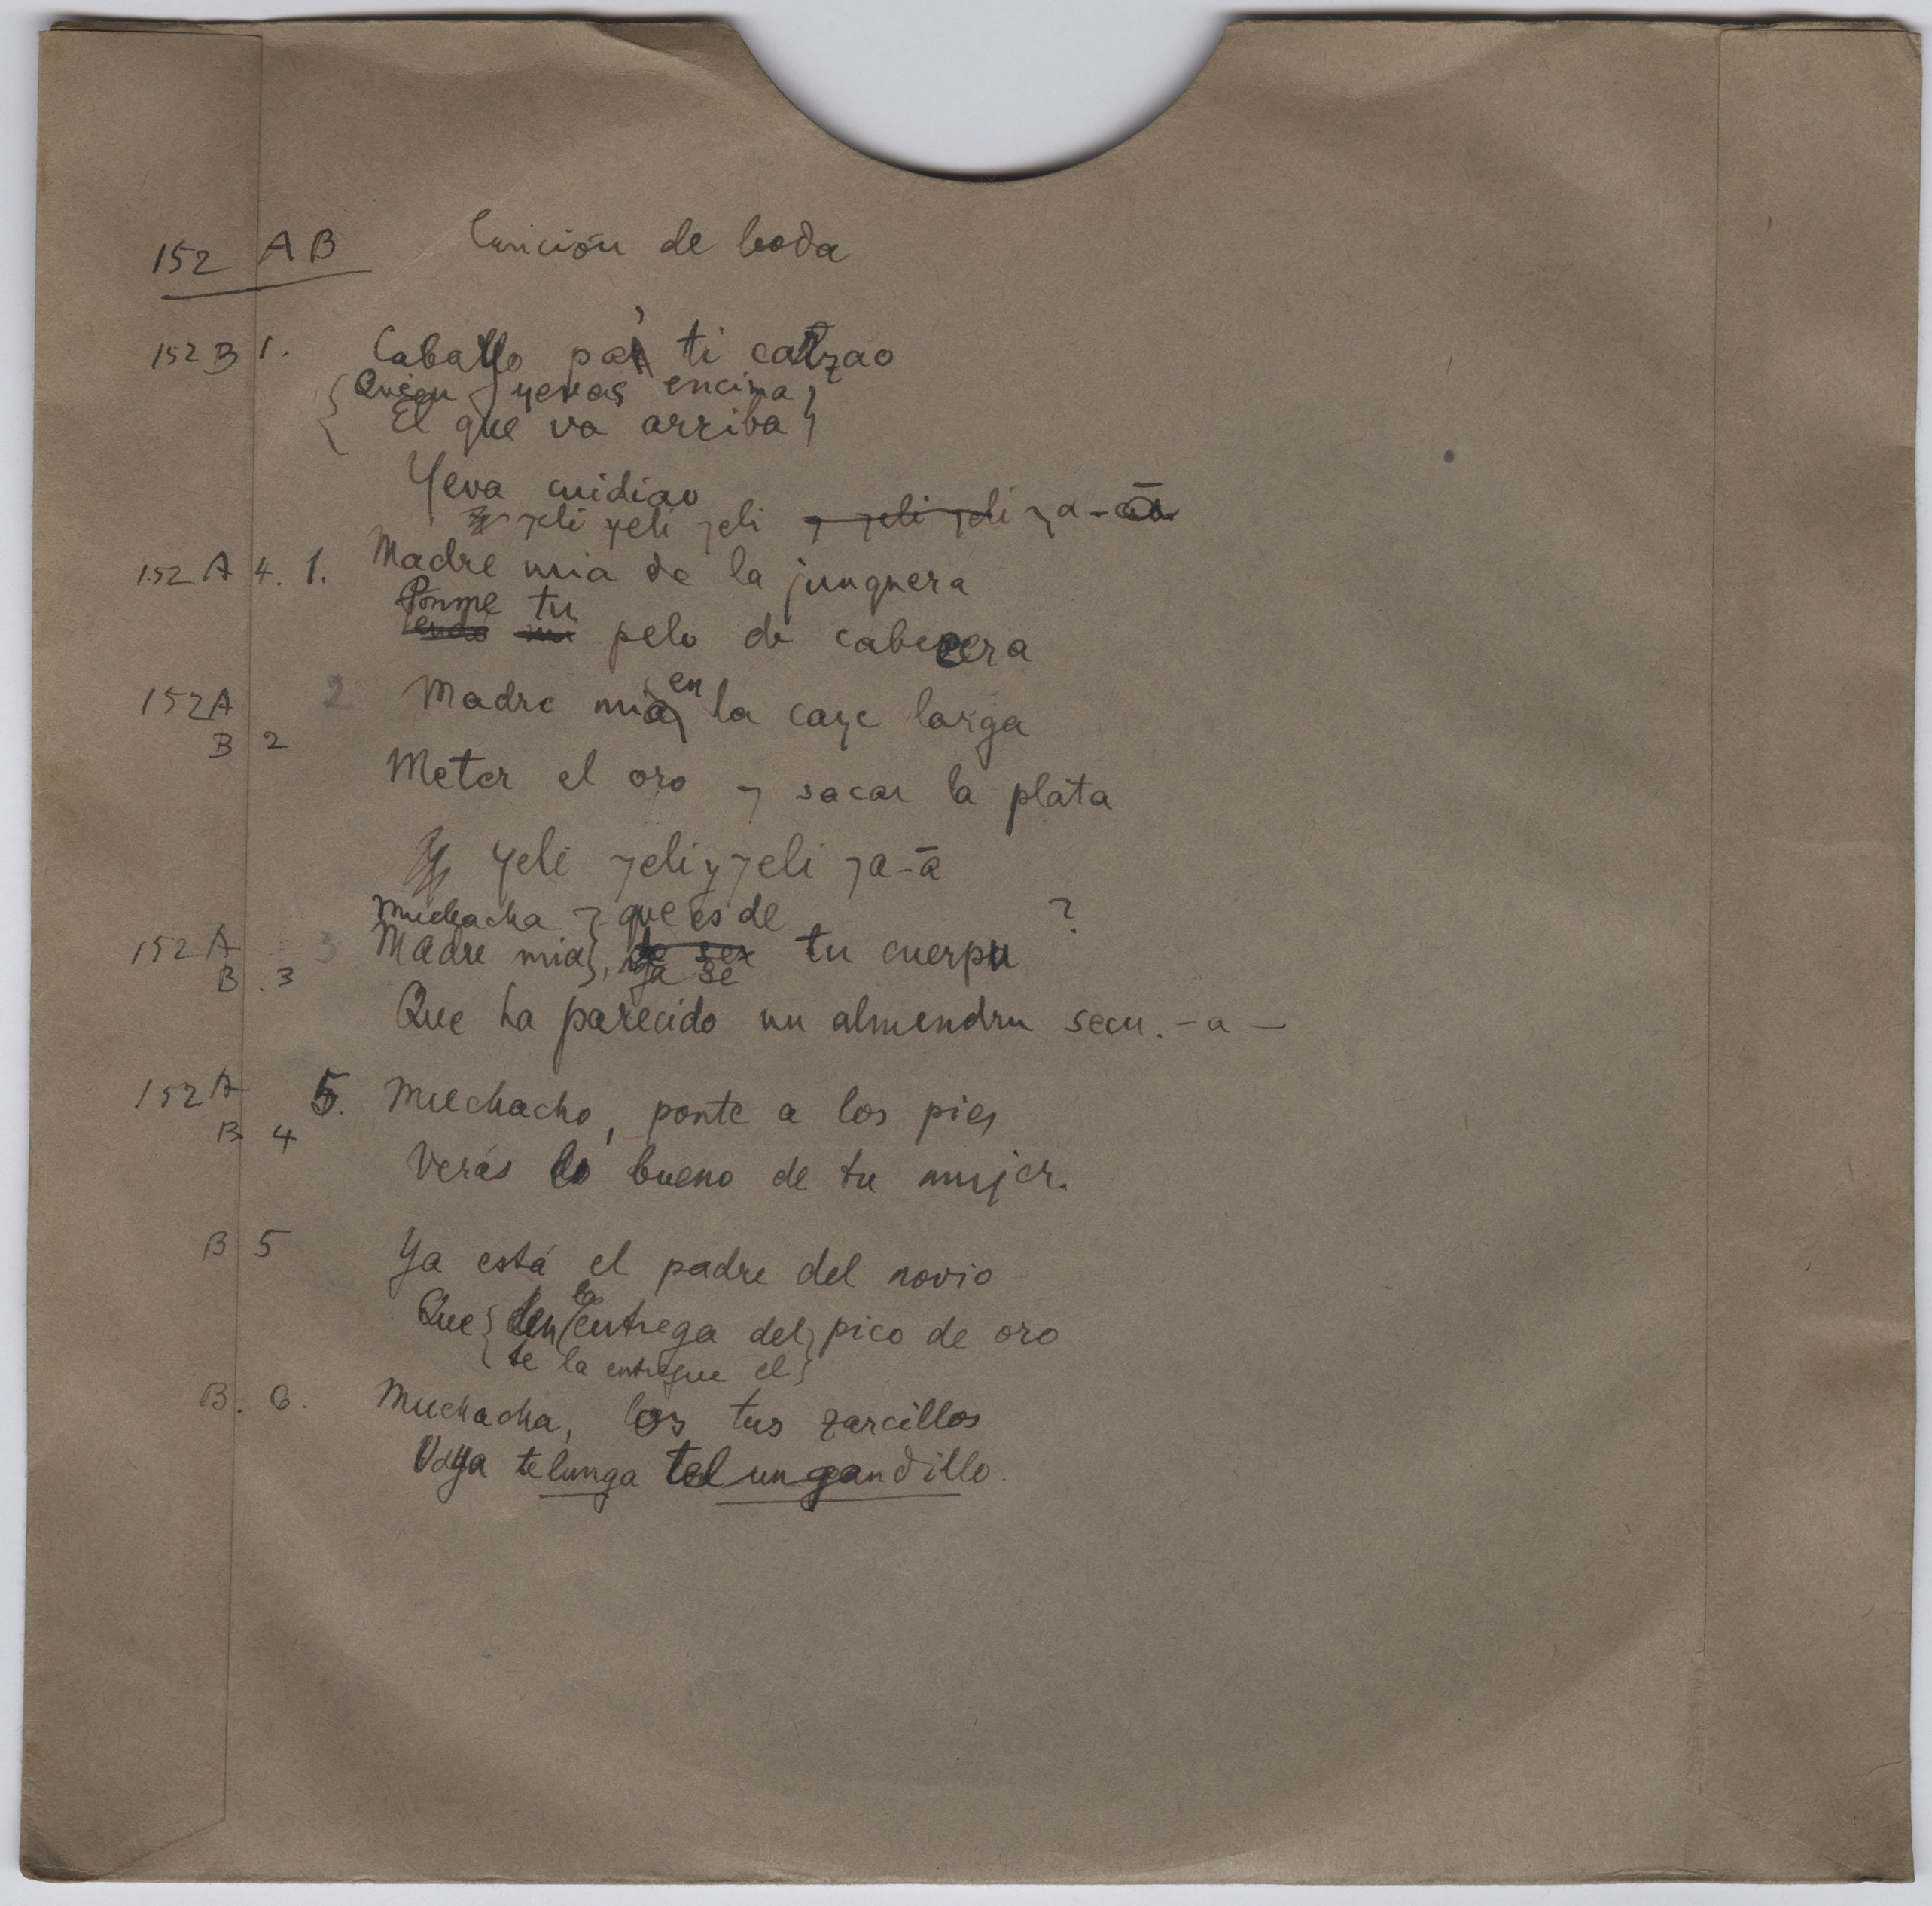 152 AB Canción de boda
152 B 1. Caballo pa' ti calzao
Quien yevas encima
El que va arriba
Yeva cuidiao
yeli yeli yeli y yeli yeli ya-ā
152 A 4. 1. Madre mia de la junquera
Ponme tu
pelo de cabecera
152A 2 Madre mia en la caye larga
B 2
Meter el oro y sacar la plata
Y yeli yeli y yeli ya-ā
Muchacha que es de ?
152A 3 Madre mia, te ser tu cuerpu
B. 3 ya se
Que ha parecido un almendru secu. - a -
152A 5. Muchacho, ponte a los pies
B 4
Verás lo bueno de tu mujer.
B 5 Ya está el padre del novio
la
Que den entrega del pico de oro
te la entregue el
B. 6. Muchacha, los tus zarcillos
Vaya telunga telungandillo.